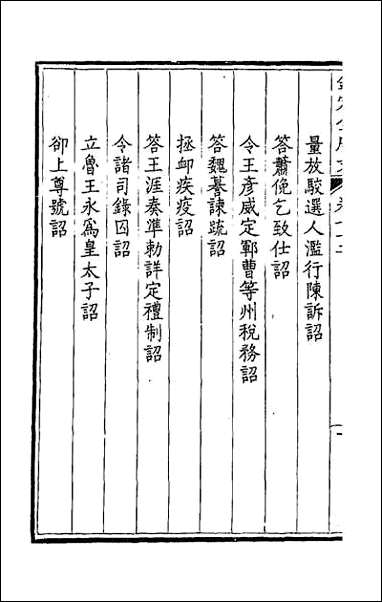 量放駮選人濫行陳訴詔
答蕭俛乞致仕詔
令王彥威定鄆曹等州稅務詔
答魏謩諫疏詔
拯卹疾疫詔
答王涯奏準勅詳定禮制詔
令諸司錄囚詔
立魯王永爲皇太子詔
卻上尊號詔